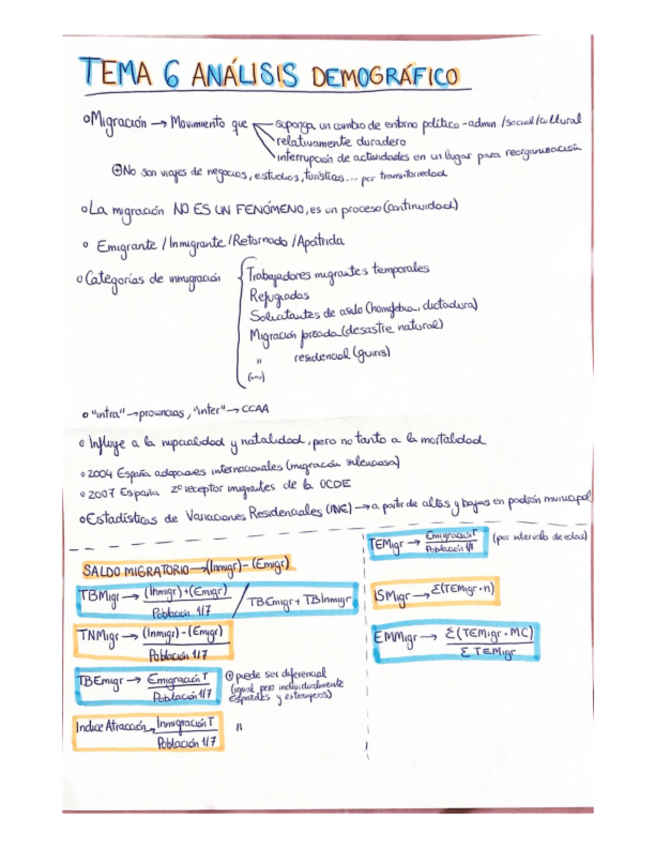 TEMA 6 ANÁLISIS DEMOGRÁFICO
Migración → Movimiento que
suponga un cambio de entorno político-admin /social/cultural
relativamente duradero
interrupción de actividades en un lugar para reorganización
No son viajes de negocios, estudios, turísticos... por transitoriedad
La migración NO ES UN FENÓMENO, es un proceso (continuidad)
Emigrante / Inmigrante / Retornado / Apátrida
Categorías de inmigración
Trabajadores migrantes temporales
Refugiados
Solicitantes de asilo (homofobia, dictadura)
Migración forzada (desastre natural)
" residencial (guiris)
(...)
"intra" → provincias, "inter" → CCAA
Influye a la nupcialidad y natalidad, pero no tanto a la mortalidad
2004 España adopciones internacionales (migración silenciosa)
2007 España 2º receptor imigrantes de la OCDE
Estadísticas de Variaciones Residenciales (INE) → a partir de altas y bajas en padrón municipal
SALDO MIGRATORIO → (Inmigr) - (Emigr)
TBMigr → (Inmigr)+(Emigr) / TBEmigr + TBInmigr
Población 1/7
TNMigr → (Inmigr) - (Emigr)
Población 1/7
TBEmigr → Emigración T
Población 1/7
puede ser diferencial
(igual pero individualmente
españoles y extranjeros)
Indice Atracción → Inmigración T "
Población 1/7
TEMigr → Emigración T (por intervalo de edad)
Población 1/7
ISMigr → Σ(TEMigr · n)
EMMigr → Σ(TEMigr · MC)
Σ TEMigr